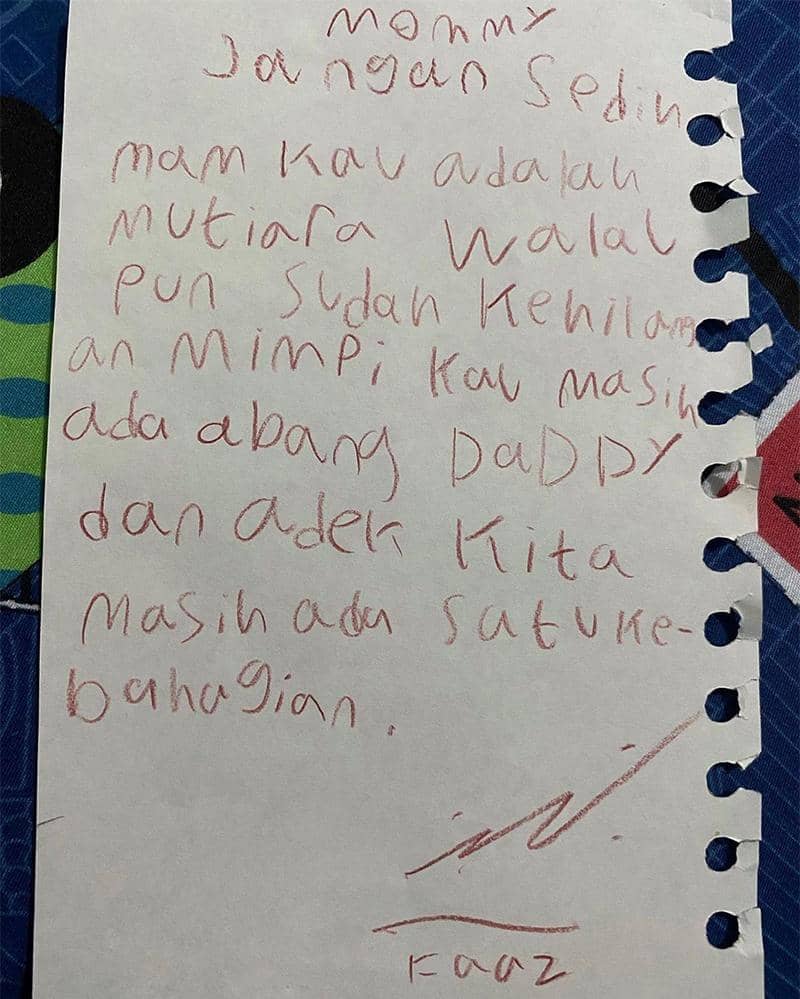 Mommy
Jangan Sedih
mam kau adalah
mutiara walau
pun sudah kehilang
an Mimpi kau masih
ada abang DaDDY
dan adek kita
masih ada satu ke-
bahagian.
Faaz